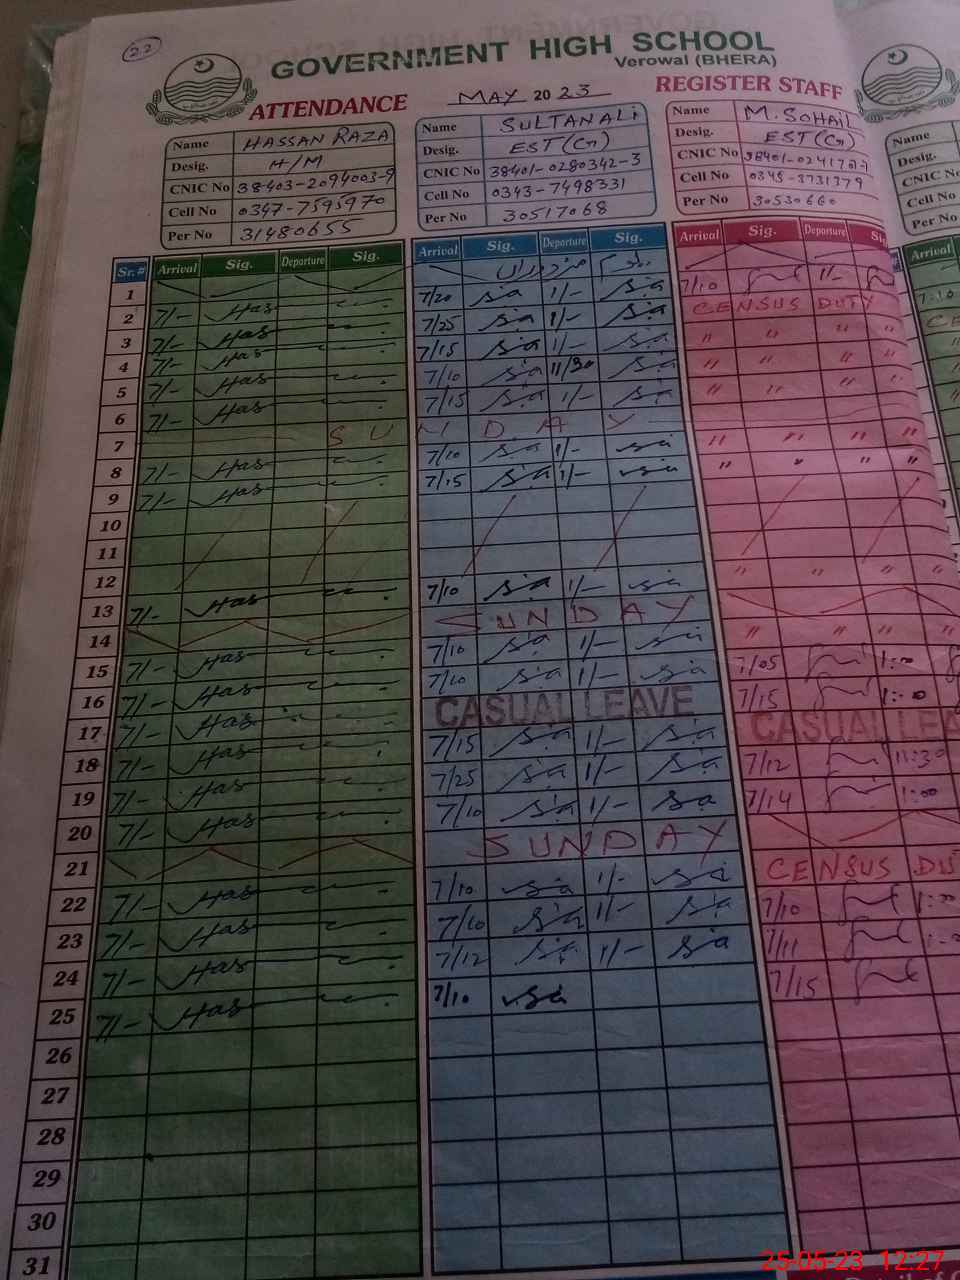 22
GOVERNMENT HIGH SCHOOL
Verowal (BHERA)
ATTENDANCE MAY 2023 REGISTER STAFF
Name HASSAN RAZA
Desig. H/M
CNIC No 38403-2094003-9
Cell No 0347-7595970
Per No 31480655
Name SULTAN ALi
Desig. EST (G)
CNIC No 38401-0280342-3
Cell No 0343-7498331
Per No 30517068
Name M. SOHAiL
Desig. EST (G)
CNIC No
Cell No 0345-3731379
Per No 30530660
Name
Desig.
CNIC No
Cell No
Per No
Sr.# Arrival Sig. Departure Sig. Arrival Sig. Departure Sig. Arrival Sig. Departure Sig. Arrival
1 7/- Has 7/20 sia 1/- sia 7/10 1/- 7:10
2 7/- Has 7/25 sia 1/- sia CENSUS DUTY CE
3 7/- Has 7/15 sia 1/- sia " " " "
4 7/- Has 7/10 sia 11/30 sia " " " "
5 7/- Has 7/15 sia 1/- sia " " " "
6 7/- Has
7 SUNDAY
7/10 sia 1/- sia " " " "
8 7/- Has 7/15 sia 1/- sia " " " "
9 7/- Has
10
11
12 7/10 sia 1/- sia " " " "
13 7/- Has SUNDAY
14 7/10 sia 1/- sia " " " "
15 7/- Has 7/10 sia 1/- sia 7/05 1:00
16 7/- Has CASUAL LEAVE 7/15 1:00
17 7/- Has 7/15 sia 1/- sia CASUAL LEA
18 7/- Has 7/25 sia 1/- sia 7/12 11:30
19 7/- Has 7/10 sia 1/- sa 7/14 1:00
20 7/- Has SUNDAY
21 7/10 sia 1/- sa CENSUS DU
22 7/- Has 7/10 sia 1/- sia 7/10 1:00
23 7/- Has 7/12 sia 1/- sia 7/11
24 7/- Has 7/10 sia 7/15
25 7/- Has
26
27
28
29
30
31
25-05-23 12:27